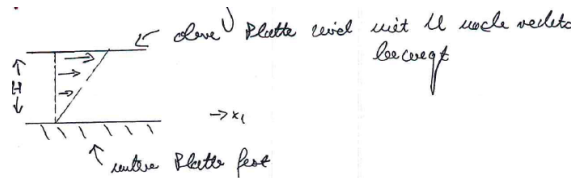 obere Platte wird mit U nach rechts
bewegt
H
→ x₁
untere Platte fest